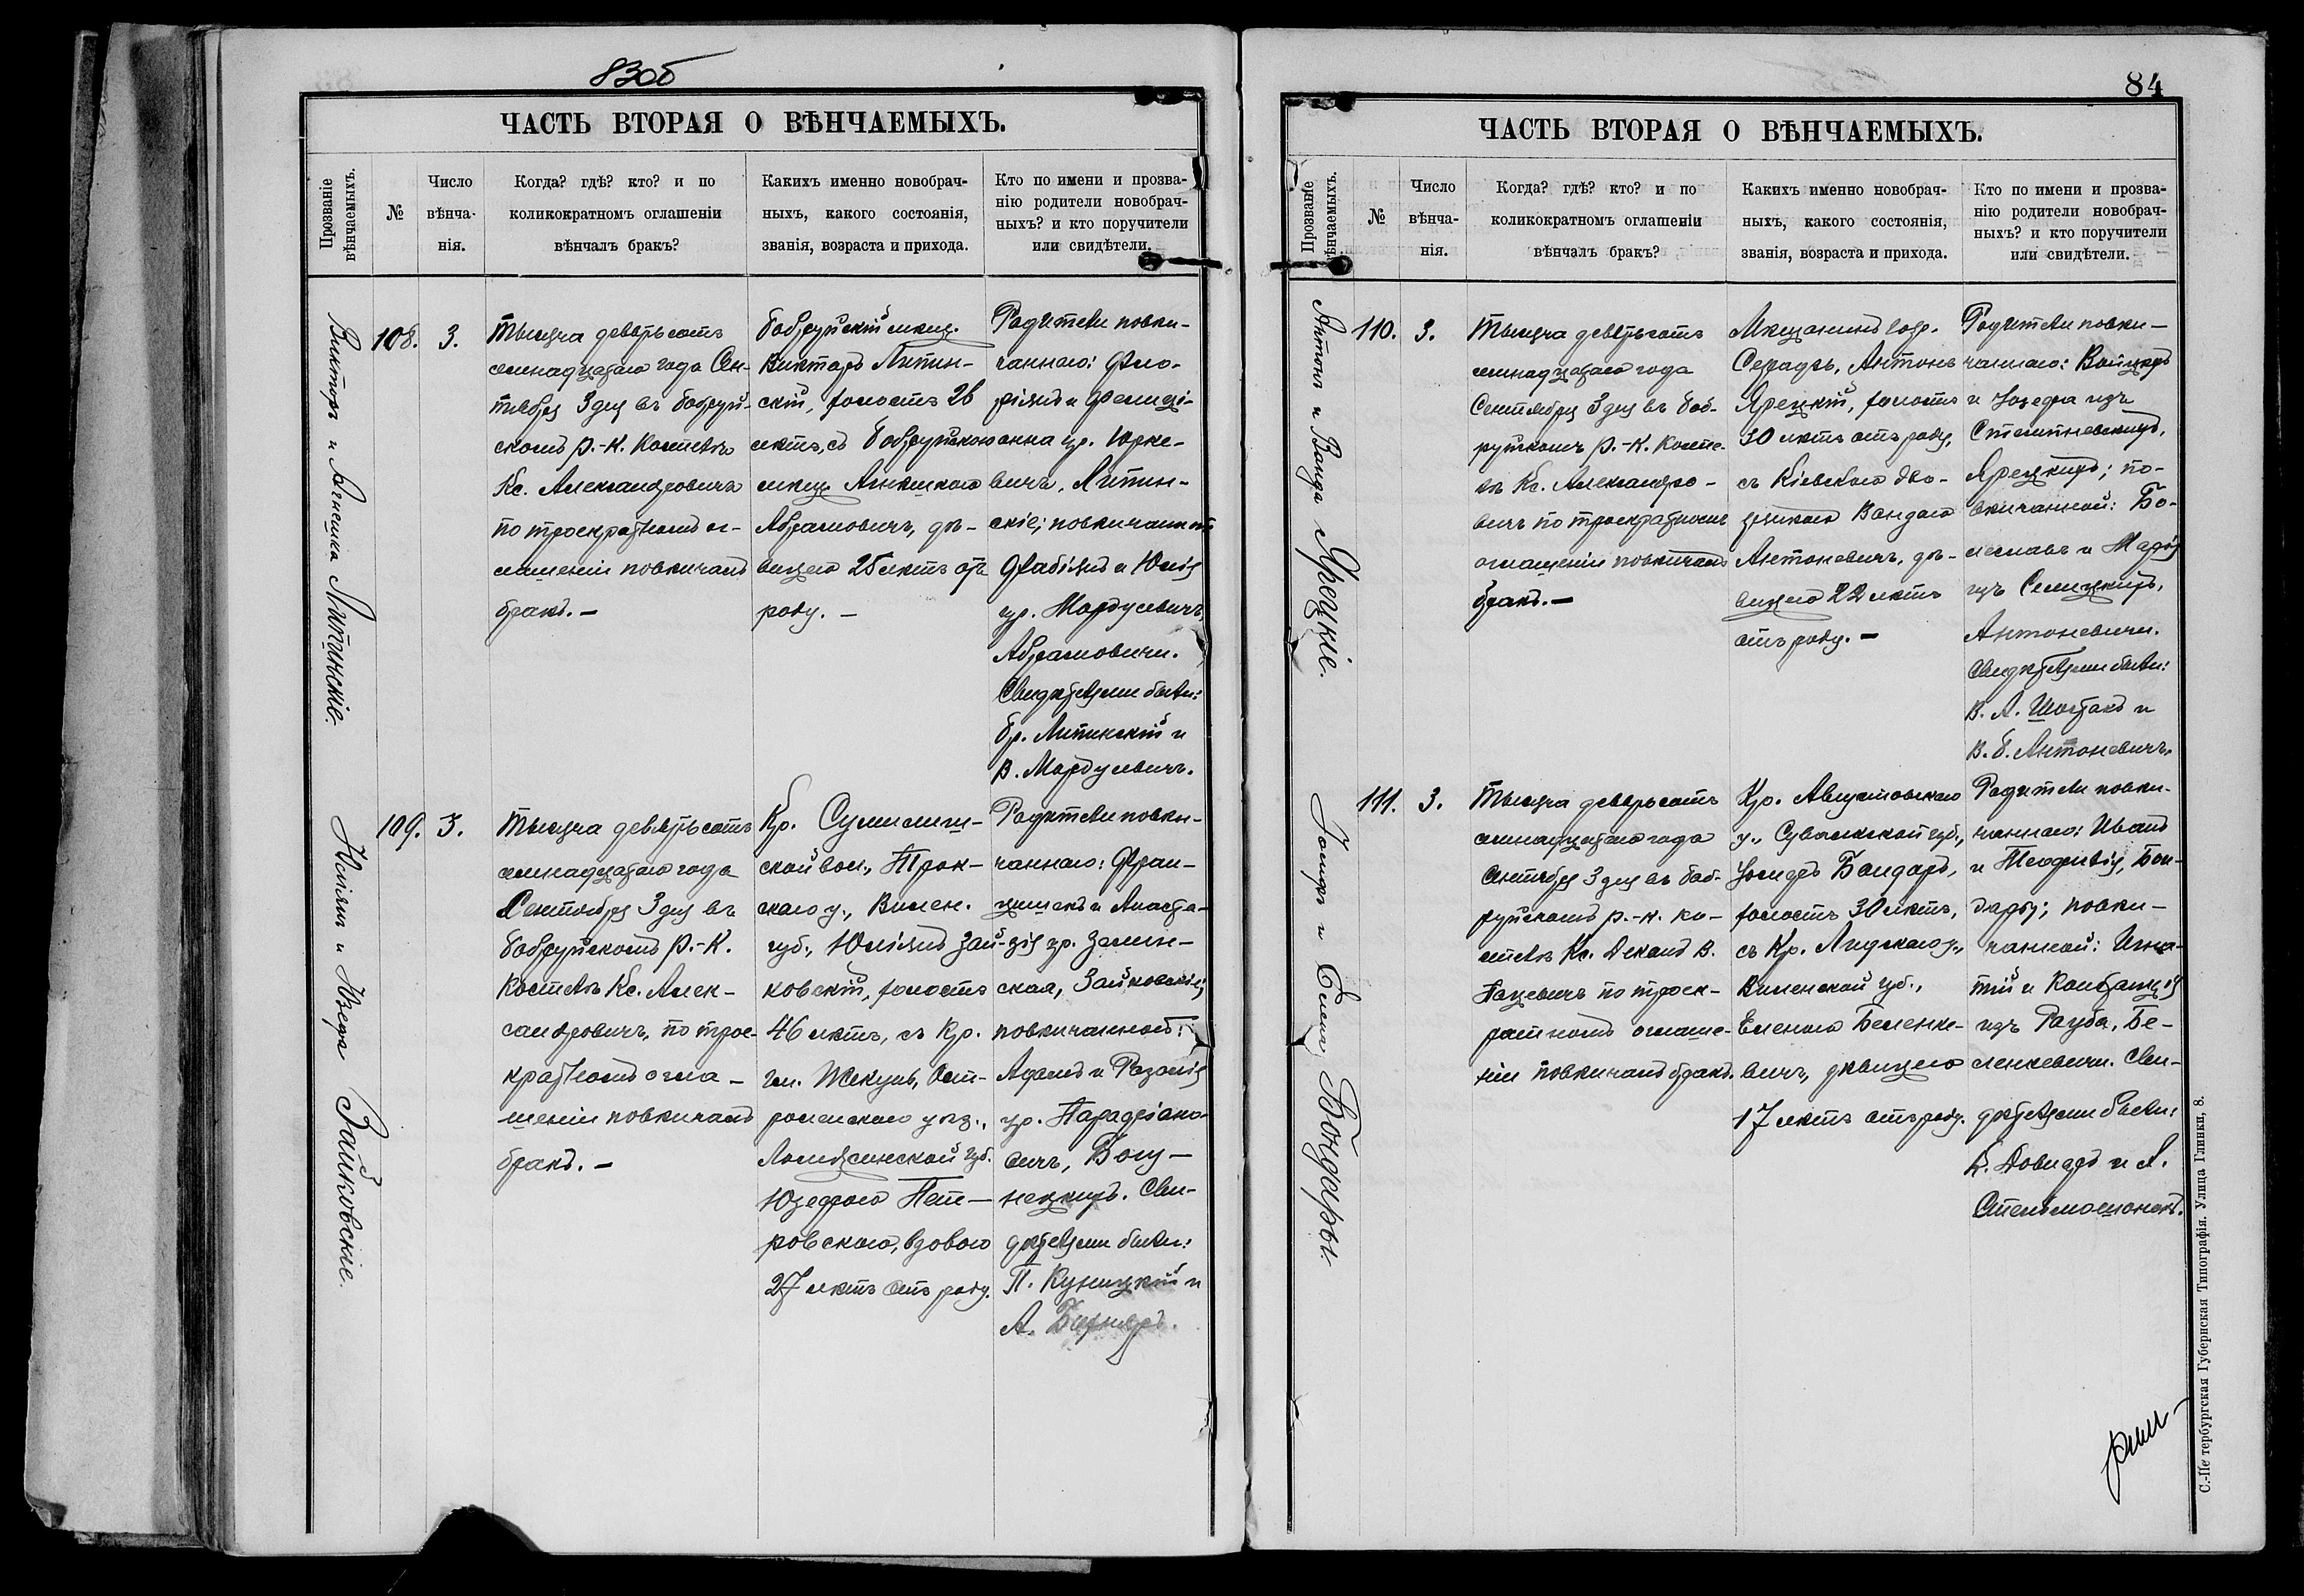 83об
ЧАСТЬ ВТОРАЯ О ВѢНЧАЕМЫХЪ.
Прозваніе вѣнчаемыхъ.
№
Число вѣнча-
нія.
Когда? гдѣ? кто? и по
коликократномъ оглашеніи
вѣнчалъ бракъ?
Какихъ именно новобрач-
ныхъ, какого состоянія,
званія, возраста и прихода.
Кто по имени и прозва-
нію родители новобрач-
ныхъ? и кто поручители
или свидѣтели.
Викторъ и Агнешка Липинскіе.
108.
3.
Тысяча девятьсотъ
семнадцатаго года Сен-
тября 3 дня въ Бобруй-
скомъ р.-к. костелѣ
Кс. Александровичъ
по троекратномъ ог-
лашеніи повѣнчалъ
бракъ. —
Бобруйскій мѣщ.
Викторъ Липин-
скій, холостъ 26
лѣтъ, съ Бобруйскою
мѣщ. Агнешкою
Абрамовичъ, дѣ-
вицею 25 лѣтъ отъ
роду. —
Родители повѣн-
чаннаго: Фло-
ріянъ и Фелиці-
анна ур. Юрке-
вичъ, Липин-
скіе; повѣнчанной
Фабіянъ и Юлія
ур. Мордусевичъ,
Абрамовичи.
Свидѣтелями были:
Бр. Липинскій и
В. Мордусевичъ.
Юліянъ и Юзефа Зайковскіе.
109.
3.
Тысяча девятьсотъ
семнадцатаго года
Сентября 3 дня въ
Бобруйскомъ р.-к.
костелѣ Кс. Алек-
сандровичъ, по трое-
кратномъ огла-
шеніи повѣнчалъ
бракъ. —
Кр. Сумилиш-
ской вол., Трок-
скаго у., Вилен.
губ., Юліянъ Зай-
ковскій, холостъ
46 лѣтъ, съ Кр.
гм. Жекунь, Ост-
роленскаго уѣз.,
Ломжинской губ.
Юзефою Пет-
ровскою, вдовою
27 лѣтъ отъ роду.
Родители повѣн-
чаннаго: Фран-
цишекъ и Анаста-
зія ур. Залин-
ская, Зайковскіе;
повѣнчанной:
Адамъ и Розалія
ур.
Свидѣтелями были:
П. Куницкій и
А.
84
ЧАСТЬ ВТОРАЯ О ВѢНЧАЕМЫХЪ.
Прозваніе вѣнчаемыхъ.
№
Число вѣнча-
нія.
Когда? гдѣ? кто? и по
коликократномъ оглашеніи
вѣнчалъ бракъ?
Какихъ именно новобрач-
ныхъ, какого состоянія,
званія, возраста и прихода.
Кто по имени и прозва-
нію родители новобрач-
ныхъ? и кто поручители
или свидѣтели.
Антонъ и Ванда Ярецкіе.
110.
3.
Тысяча девятьсотъ
семнадцатаго года
Сентября 3 дня въ Боб-
руйскомъ р.-к. косте-
лѣ Кс. Александро-
вичъ по троекратномъ
оглашеніи повѣнчалъ
бракъ. —
Мѣщанинъ гор.
Серадзь, Антонъ
Ярецкій, холостъ
30 лѣтъ отъ роду,
съ Кіевскою дво-
рянкою Вандою
Антоневичъ, дѣ-
вицею 22 лѣтъ
отъ роду. —
Родители повѣн-
чаннаго: Войцехъ
и Юзефа изъ
Ярецкихъ; по-
вѣнчанной: Бо-
леславъ и Марія
изъ Селицкихъ,
Антоневичи.
Свидѣтелями были:
В. А. Шостакъ и
В. Б. Антоневичъ.
Іосифъ и Елена Бондары.
111.
3.
Тысяча девятьсотъ
семнадцатаго года
Сентября 3 дня въ Боб-
руйскомъ р.-к. ко-
стелѣ Кс. Деканъ В.
Пацевичъ по троек-
ратномъ оглаше-
ніи повѣнчалъ бракъ.
Кр. Августовскаго
у., Сувалкской губ.,
Іосифъ Бондаръ,
холостъ 30 лѣтъ,
съ Кр. Лидскаго у.,
Виленской губ.,
Еленою Беленке-
вичъ, дѣвицею
17 лѣтъ отъ роду.
Родители повѣн-
чаннаго: Иванъ
и Теофилія, Бон-
дары; повѣн-
чанной: Игна-
тій и Констанція
изъ Рауба, Бе-
ленкевичи. Сви-
дѣтелями были:
С.-Петербургская Губернская Типографія. Улица Глинки, 8.